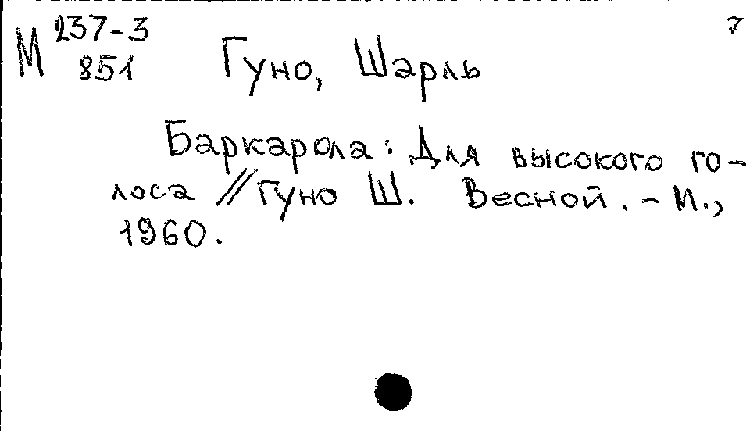 М 237-3
851
7
Гуно, Шарль
Баркарола: Для высокого го-
лоса // Гуно Ш. Весной. - М.,
1960.